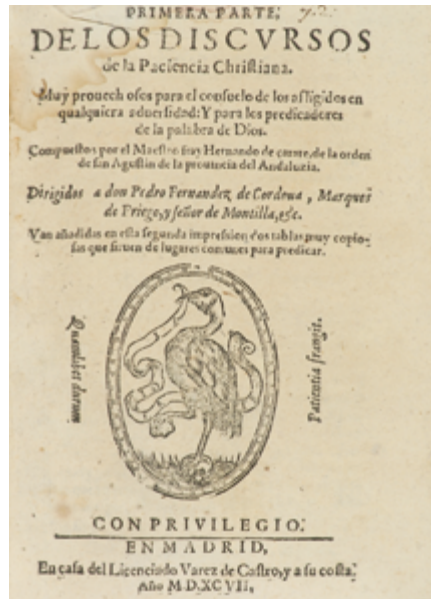 PRIMERA PARTE,
DELOS DISCVRSOS
de la Paciencia Christiana.
Muy prouechosos para el consuelo de los afligidos en
qualquiera aduersidad: Y para los predicadores
de la palabra de Dios.
Compuestos por el Maestro fray Hernando de çarate, de la orden
de san Agustin de la prouincia del Andaluzia.
Dirigidos a don Pedro Fernandez de Cordoua, Marques
de Priego, y señor de Montilla, &c.
Van añadidas en esta segunda impression dos tablas muy copio-
sas que siruen de lugares comunes para predicar.
Quamlibet durum
Patientia frangit.
CON PRIVILEGIO.
EN MADRID,
En casa del Licenciado Varez de Castro, y a su costa.
Año M.D.XCVII.